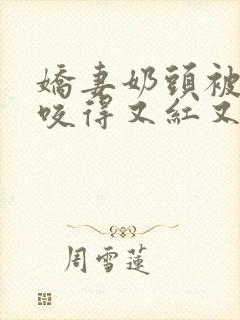 嬌妻奶頭被
咬得又紅又
周雪蓮